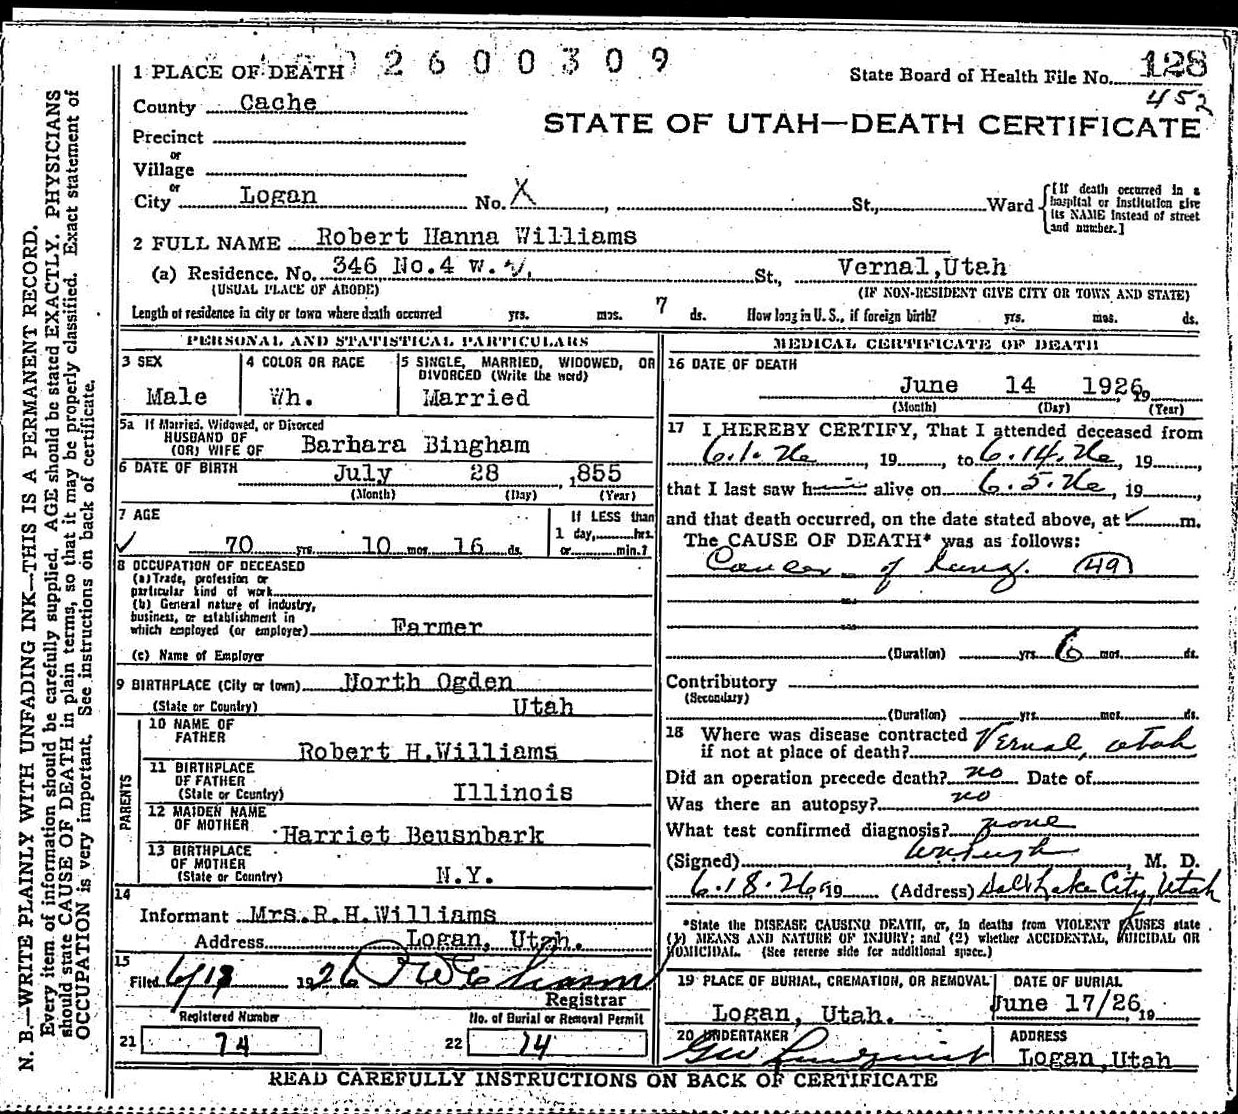 N. B.—WRITE PLAINLY WITH UNFADING INK—THIS IS A PERMANENT RECORD.
Every item of information should be carefully supplied. AGE should be stated EXACTLY. PHYSICIANS
should state CAUSE OF DEATH in plain terms, so that it may be properly classified. Exact statement of
OCCUPATION is very important. See instructions on back of certificate.
2600309
1 PLACE OF DEATH
State Board of Health File No. 128
452
County Cache
STATE OF UTAH—DEATH CERTIFICATE
Precinct
or
Village
or
City Logan No. X , St., Ward
[If death occurred in a
hospital or institution give
its NAME instead of street
and number.]
2 FULL NAME Robert Hanna Williams
(a) Residence. No. 346 No.4 W. St., Vernal,Utah
(USUAL PLACE OF ABODE) (IF NON-RESIDENT GIVE CITY OR TOWN AND STATE)
Length of residence in city or town where death occurred yrs. mos. 7 ds. How long in U. S., if foreign birth? yrs. mos. ds.
PERSONAL AND STATISTICAL PARTICULARS
3 SEX
Male
4 COLOR OR RACE
Wh.
5 SINGLE, MARRIED, WIDOWED, OR
DIVORCED (Write the word)
Married
5a If Married, Widowed, or Divorced
HUSBAND OF
(OR) WIFE OF Barbara Bingham
6 DATE OF BIRTH July 28 ,855
(Month) (Day) (Year)
7 AGE
70 yrs. 10 mos. 16 ds.
If LESS than
1 day, hrs.
or min.?
8 OCCUPATION OF DECEASED
(a) Trade, profession or
particular kind of work
(b) General nature of industry,
business, or establishment in
which employed (or employer) Farmer
(c) Name of Employer
9 BIRTHPLACE (City or town) North Ogden
(State or Country) Utah
PARENTS
10 NAME OF
FATHER
Robert H.Williams
11 BIRTHPLACE
OF FATHER
(State or Country) Illinois
12 MAIDEN NAME
OF MOTHER Harriet Beusnbark
13 BIRTHPLACE
OF MOTHER
(State or Country) N.Y.
14
Informant Mrs.R.H.Williams
Address Logan, Utah.
15
Filed 6/18 1926
Registrar
Registered Number No. of Burial or Removal Permit
21 74 22 74
MEDICAL CERTIFICATE OF DEATH
16 DATE OF DEATH
June 14 1926, 19
(Month) (Day) (Year)
17 I HEREBY CERTIFY, That I attended deceased from
6.1.26, 19 , to 6.14.26, 19 ,
that I last saw h alive on 6.5.26, 19 ,
and that death occurred, on the date stated above, at m.
The CAUSE OF DEATH* was as follows:
Cancer of Lung. (49)
(Duration) yrs. 6 mos. ds.
Contributory
(Secondary)
(Duration) yrs. mos. ds.
18 Where was disease contracted
if not at place of death? Vernal, Utah
Did an operation precede death? no Date of
Was there an autopsy? no
What test confirmed diagnosis? none
(Signed) , M. D.
6.18.26, 19 (Address) Salt Lake City, Utah
*State the DISEASE CAUSING DEATH, or, in deaths from VIOLENT CAUSES state
(1) MEANS AND NATURE OF INJURY; and (2) whether ACCIDENTAL, SUICIDAL OR
HOMICIDAL. (See reverse side for additional space.)
19 PLACE OF BURIAL, CREMATION, OR REMOVAL
Logan, Utah.
DATE OF BURIAL
June 17/26, 19
20 UNDERTAKER
ADDRESS
Logan,Utah
READ CAREFULLY INSTRUCTIONS ON BACK OF CERTIFICATE